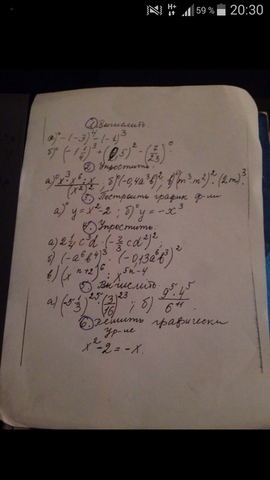 59 % 20:30
① Вычислить.
а)° −(−3)⁴ − (−1)³
б)° (−1 1/6)³ + (0,5)² − (2/23)⁰
② Упростить.
а)° x³·x⁶·x / (x²)² ; б)° (−0,4a³b)² ; в)° (m³n²)²·(2m)³
Построить график ф-ии
а)° y = x² − 2 ; б)° y = −x³
4. Упростить.
а) 2 1/4 c⁵d · (−2/3 cd²)²
б) (−a⁶b⁴)³ · (−0,13a⁶b)²
в) (xⁿ⁺²)⁶ : x⁵ⁿ⁻⁴
5. Вычислить
а) · (3/16)²³ ; б) 9⁵·4⁵ / 6¹¹
6. Решить графически
ур-ие
x² − 2 = −x.